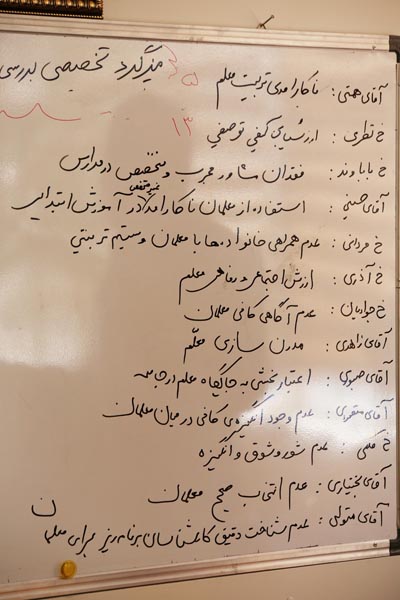 میزگرد تخصصی بررسی
آقای همتی : ناکارامدی تربیت معلم
خ نظری : ارزشیابی کیفی توصیفی
۱۳
خ باباوند : فقدان مشاور مجرب و متخصص در مدارس
آقای حسینی : استفاده از معلمان ناکارامد غیر متخصص در آموزش ابتدایی
خ مردانی : عدم همراهی خانواده ها با معلمان و سیستم تربیتی
خ آذری : ارزش اجتماعی و رفاهی معلم
خ جوادیان : عدم آگاهی کافی معلمان
آقای زاهدی : مدرن سازی معلم
آقای صبوری : اعتبار بخشی به جایگاه معلم در جامعه
آقای منصوری : عدم وجود انگیزه ی کافی در میان معلمان
خ : عدم شور و شوق و انگیزه
آقای بختیاری : عدم انتخاب صحیح معلمان
ن
آقای متولی : عدم شناخت دقیق کارشناسان برنامه ریز برای معلم